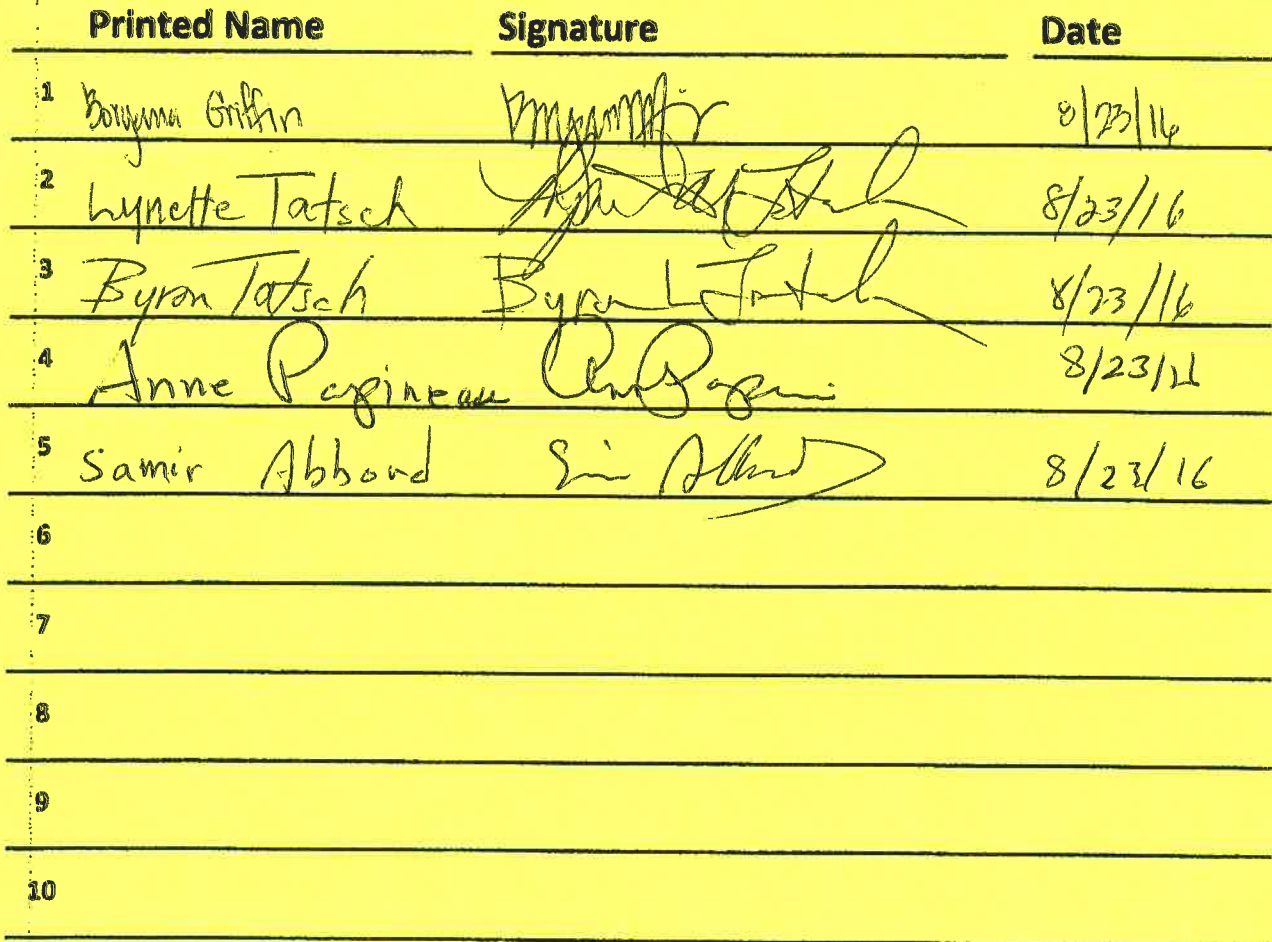 Printed Name Signature Date
1 Griffin 8/23/16
2 Lynette Tatsch 8/23/16
3 Byron Tatsch Byron L Tatsch 8/23/16
4 Anne Papineau 8/23/16
5 Samir Abboud 8/23/16
6
7
8
9
10